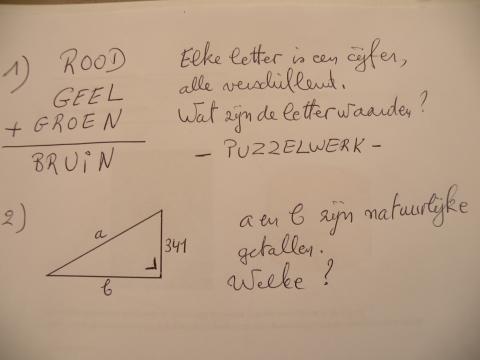 1) ROOD
GEEL
+ GROEN
BRUiN
Elke letter is een cijfer,
alle verschillend.
Wat zijn de letterwaarden?
- PUZZELWERK -
2)
a
341
b
a en b zijn natuurlijke
getallen.
Welke?